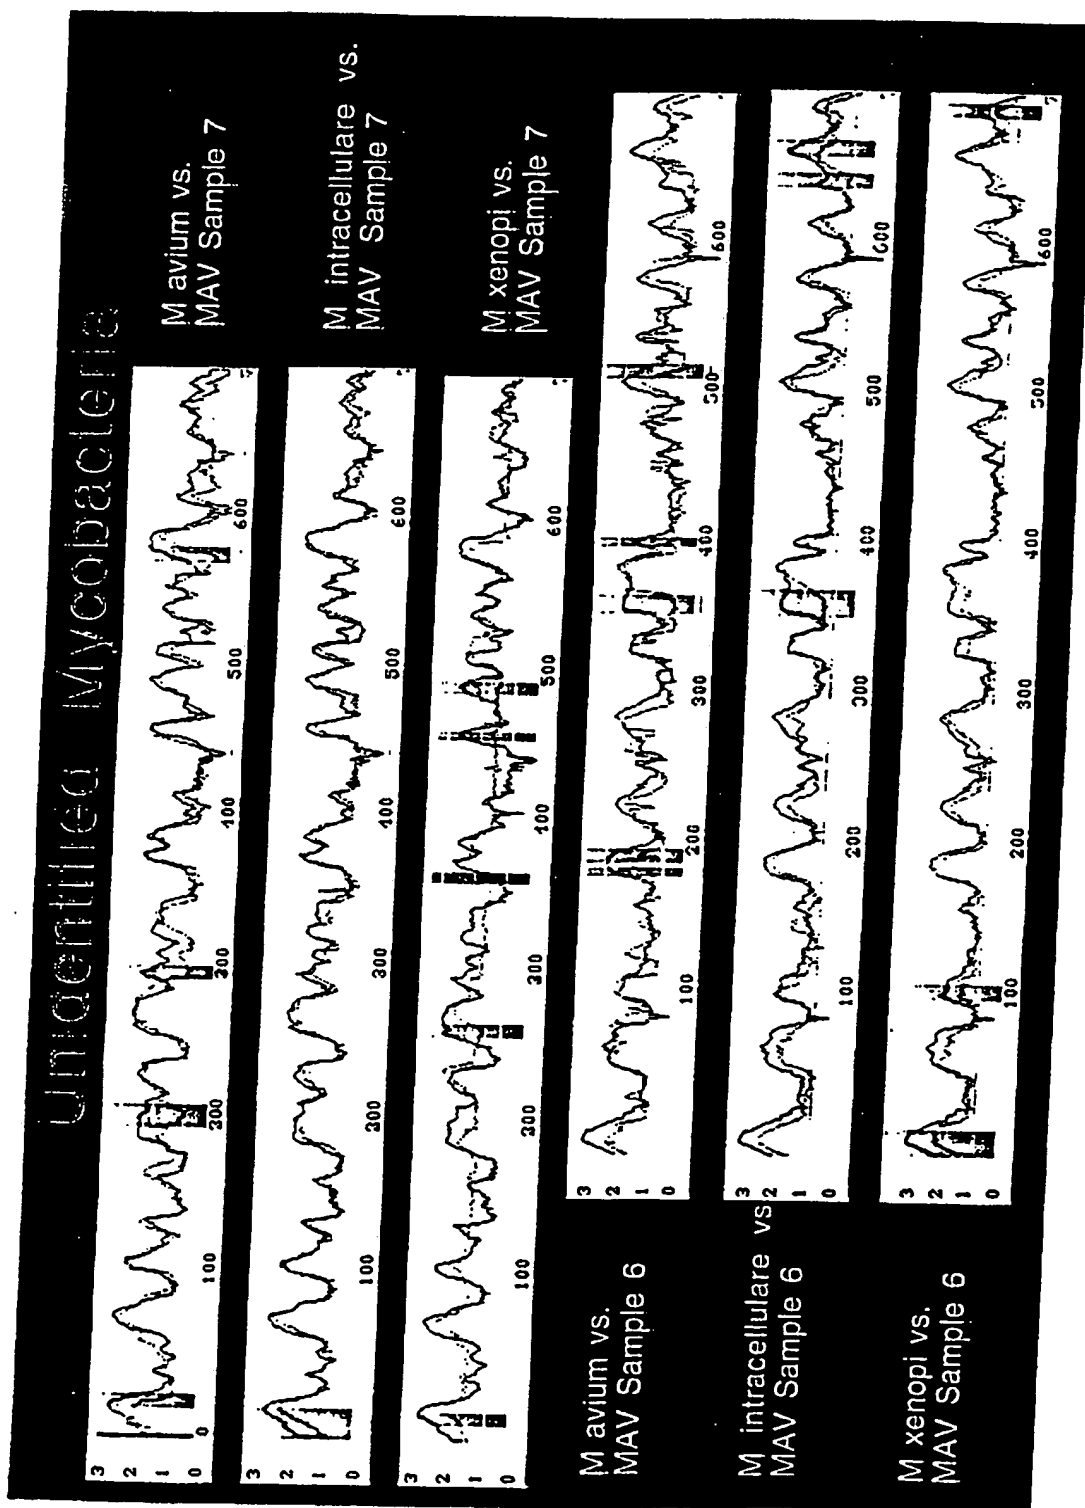 Unidentified Mycobacteria
M avium vs.
MAV Sample 7
3
2
1
0
0
100
200
300
400
500
600
M intracellulare vs.
MAV Sample 7
3
2
1
0
100
200
300
400
500
600
M xenopi vs.
MAV Sample 7
3
2
1
0
100
200
300
400
500
600
M avium vs.
MAV Sample 6
3
2
1
0
100
200
300
400
500
600
M intracellulare vs.
MAV Sample 6
3
2
1
0
100
200
300
400
500
600
M xenopi vs.
MAV Sample 6
3
2
1
0
100
200
300
400
500
600